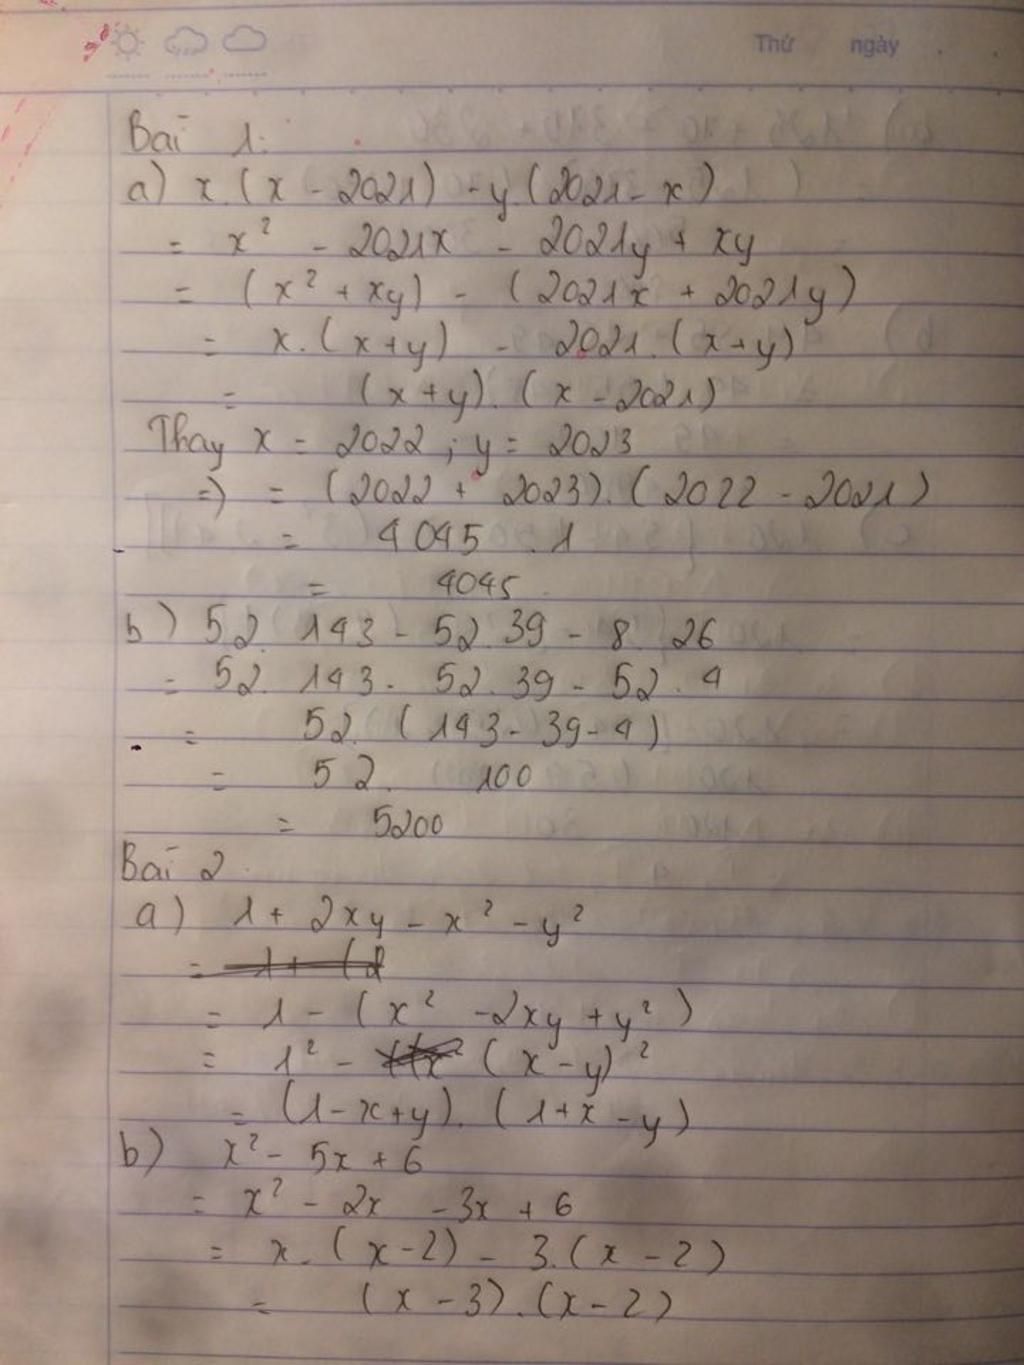 Thứ ngày
Bài 1:
a) x.(x - 2021) - y.(2021 - x)
= x² - 2021x - 2021y + xy
= (x² + xy) - (2021x + 2021y)
= x.(x+y) - 2021.(x+y)
= (x+y).(x - 2021)
Thay x = 2022 ; y = 2023
=> = (2022 + 2023).(2022 - 2021)
= 4045 . 1
= 4045
b) 52. 143 - 52.39 - 8. 26
= 52. 143 - 52.39 - 52.4
= 52. (143 - 39 - 4)
= 52. 100
= 5200
Bài 2
a) 1 + 2xy - x² - y²
= 1 - (x² - 2xy + y²)
= 1² - (x - y)²
= (1 - x + y).(1 + x - y)
b) x² - 5x + 6
= x² - 2x - 3x + 6
= x.(x - 2) - 3.(x - 2)
= (x - 3).(x - 2)